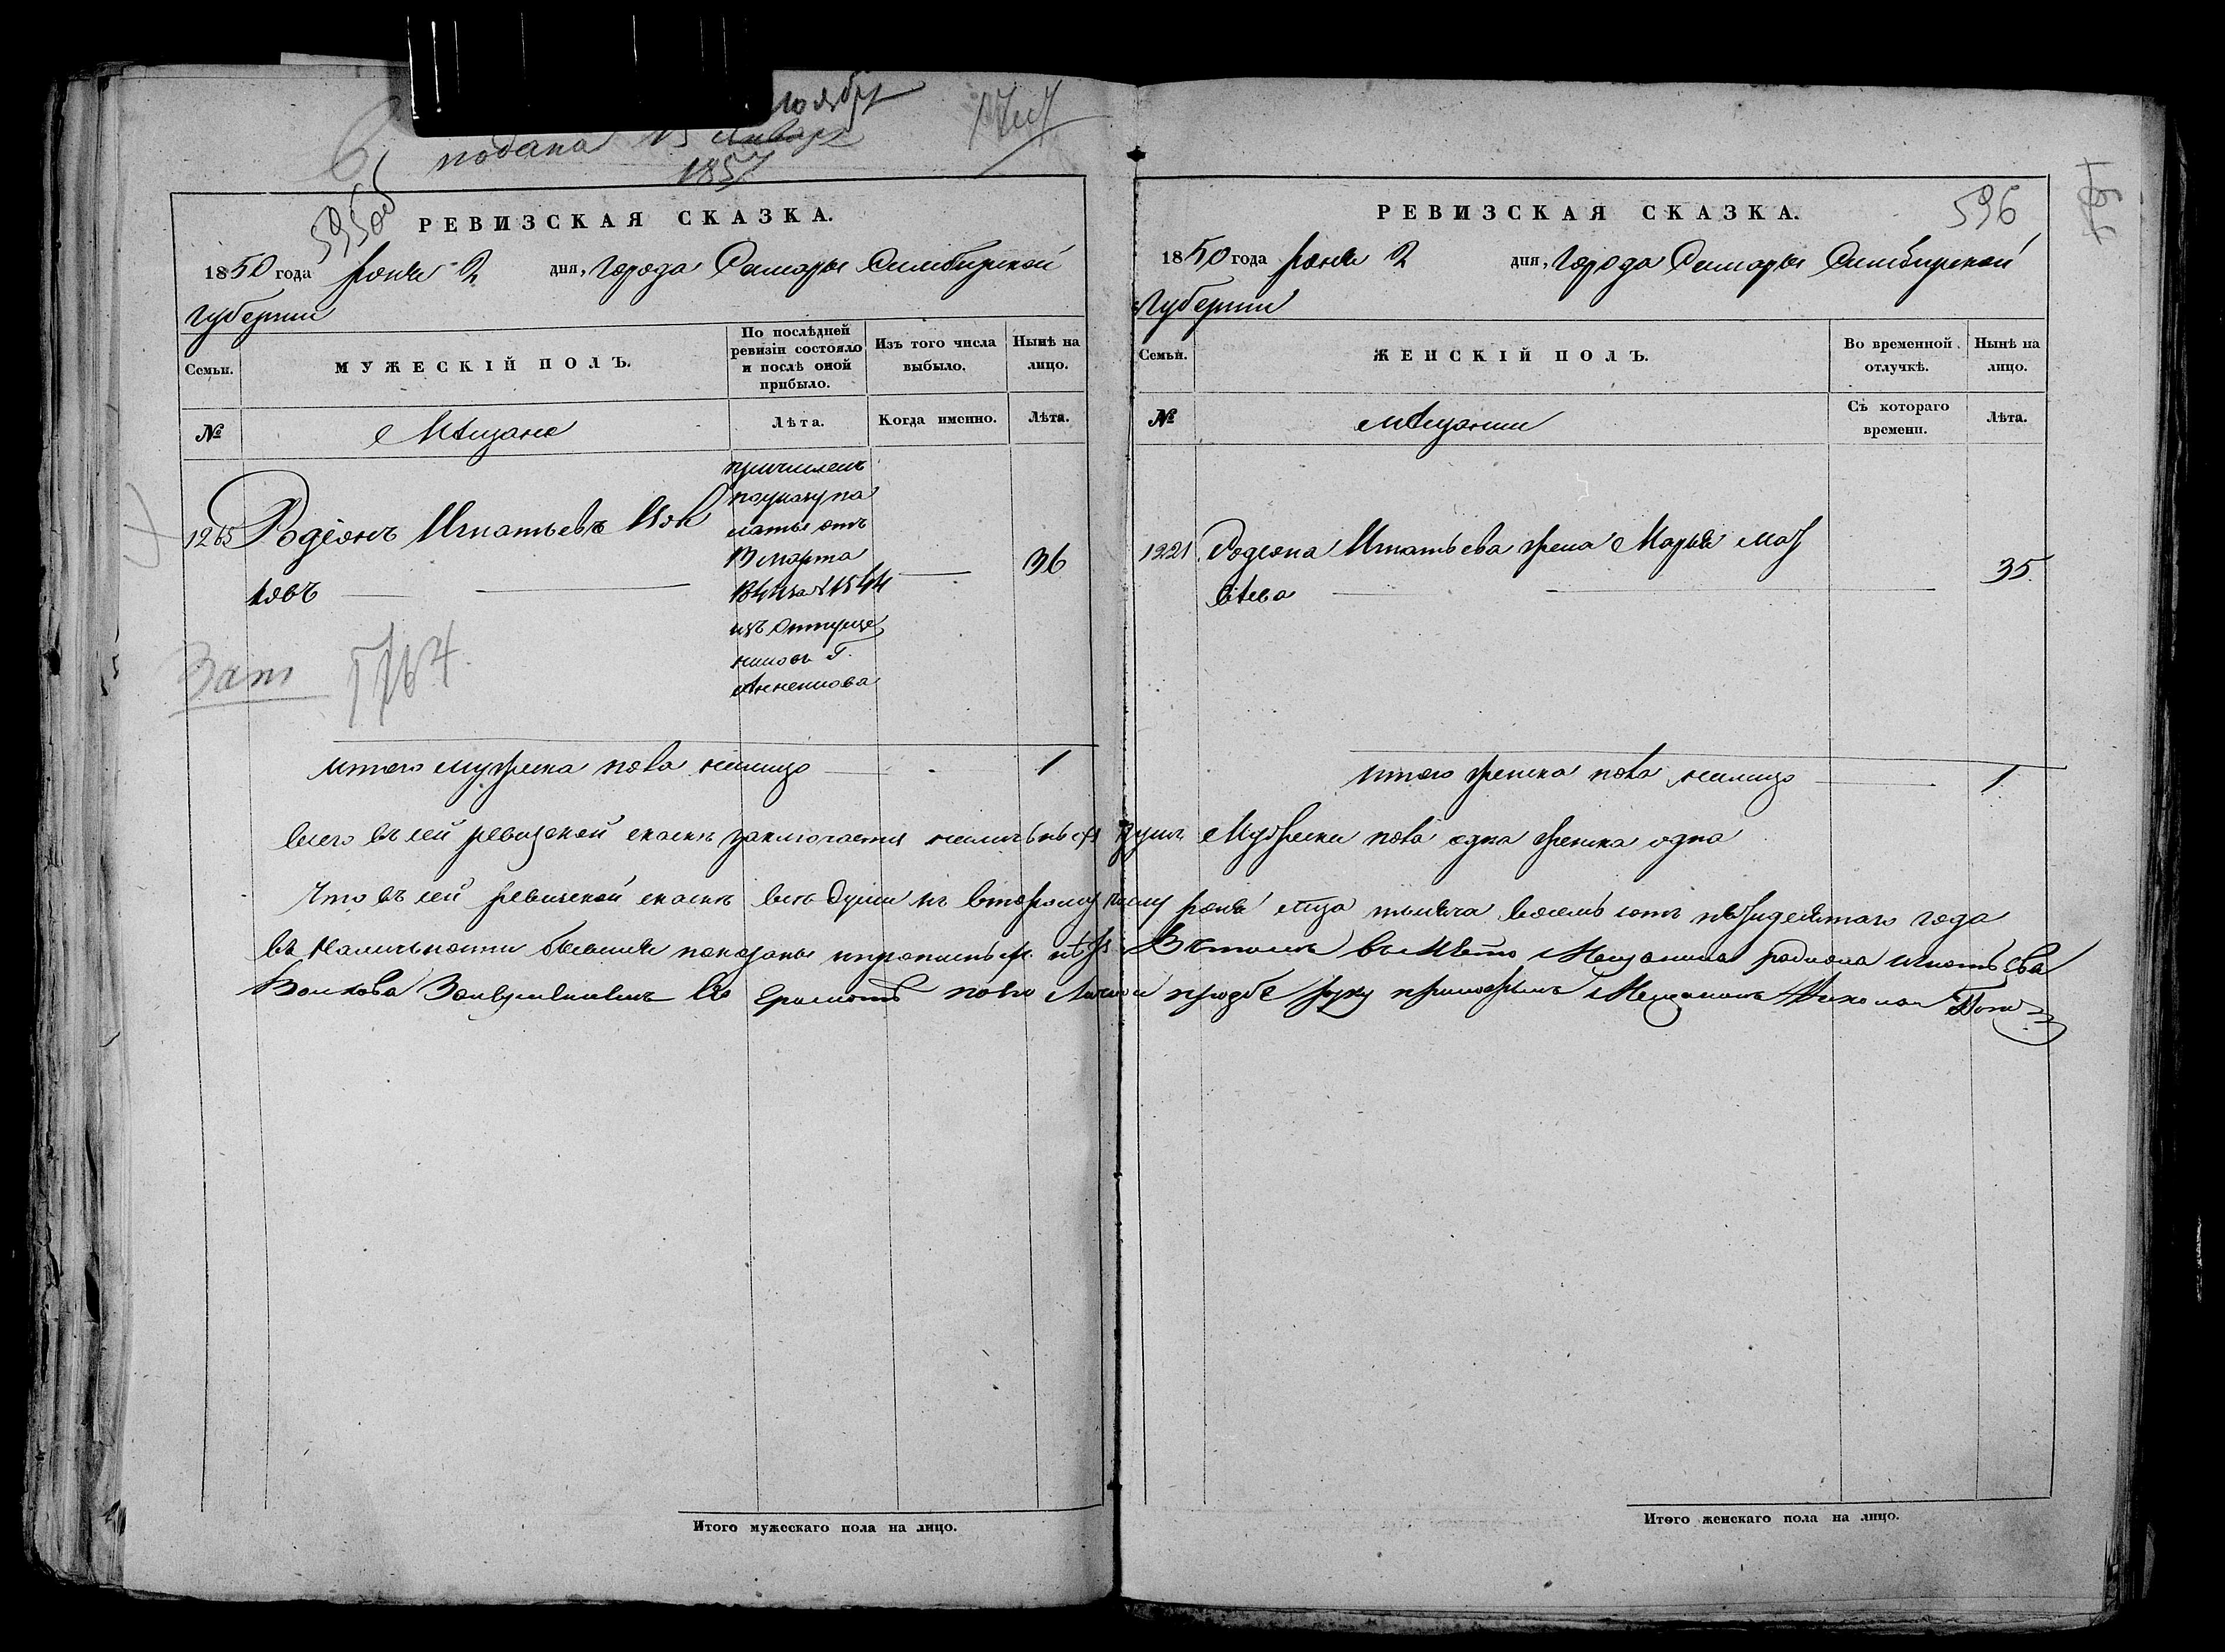 Ноября
подана 15 Января
1857
595об
РЕВИЗСКАЯ СКАЗКА.
1850 года Іюня 2 дня, Города Самары Симбирской
Губернии
Семьи.
МУЖЕСКІЙ ПОЛЪ.
По послѣдней
ревизіи состояло
и послѣ оной
прибыло.
Изъ того числа
выбыло.
Нынѣ на
лицо.
№
Мѣщане
Лѣта.
Когда именно.
Лѣта.
1265 Родіонъ Игнатьевъ Вол
ковъ
причисленъ
по указу па
латы отъ
13 марта
изъ отпуще
никовъ Г.
Анненкова
36
Зап
Итого мужеска пола налицо 1
596
РЕВИЗСКАЯ СКАЗКА.
1850 года Іюня 2 дня, Города Самары Симбирской
Губернии
Семьи.
ЖЕНСКІЙ ПОЛЪ.
Во временной
отлучкѣ.
Нынѣ на
лицо.
№
Мѣщанки
Съ котораго
времени.
Лѣта.
1221 Родіона Игнатьева жена Марья Мат
вѣева
35
Итого женска пола налицо 1
Всего въ сей ревизской сказкѣ заключается наличныхъ душъ Мужеска пола одна женска одна
Что въ сей ревизской сказкѣ все души къ второму числу Іюня мѣсяца тысяча восемь сотъ пятидесятаго года
въ наличности бывшия показаны и прописныхъ нѣтъ В томъ вместо Мещанина родиона игнатьева
Волкова За неумениемъ Грамоте по его Личной прозбе руку приложилъ Мещанинъ Николай
Итого мужескаго пола на лицо.
Итого женскаго пола на лицо.